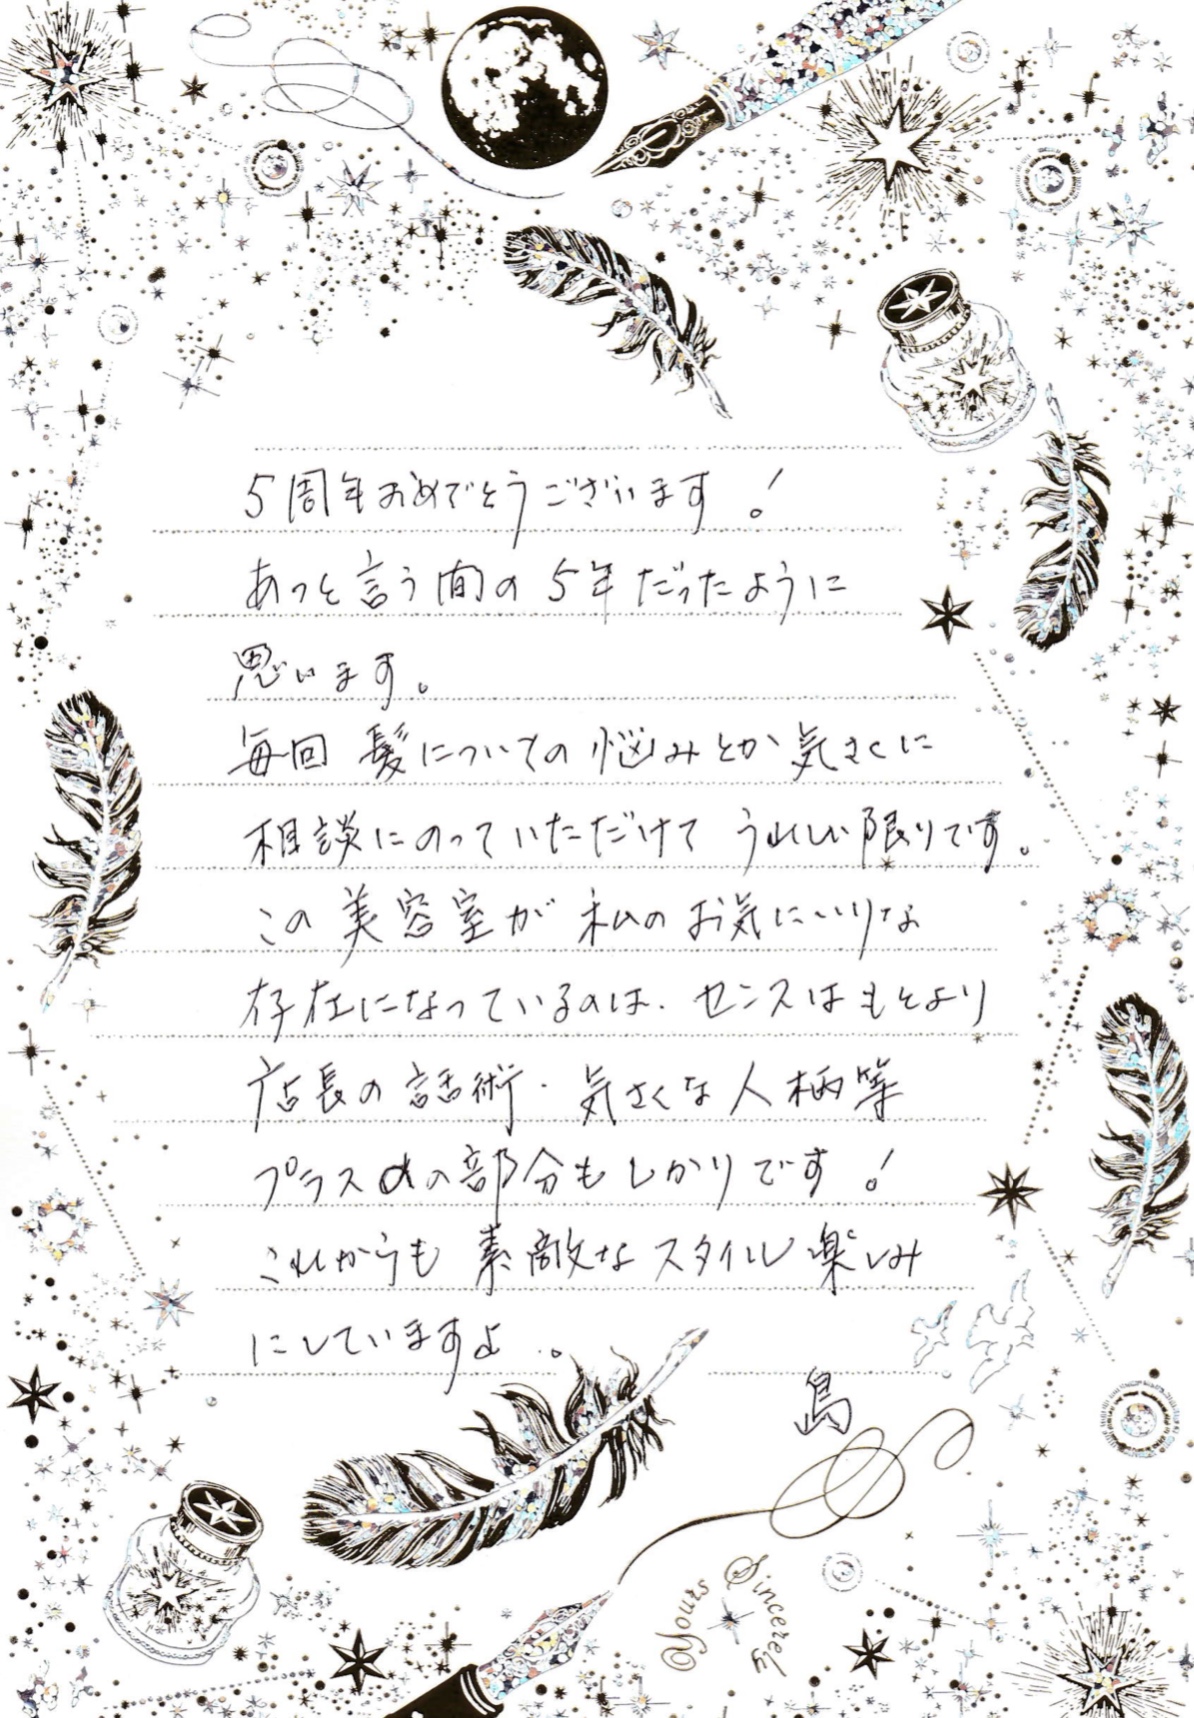 5周年おめでとうございます!
あっと言う間の5年だったように
思います。
毎回 髪についての悩みとか気さくに
相談にのっていただけて うれしい限りです。
この美容室が私のお気にいりな
存在になっているのは、センスはもとより
店長の話術・気さくな人柄等
プラスαの部分もしかりです!
これからも素敵なスタイル楽しみ
にしていますよ。
島
Yours Sincerely